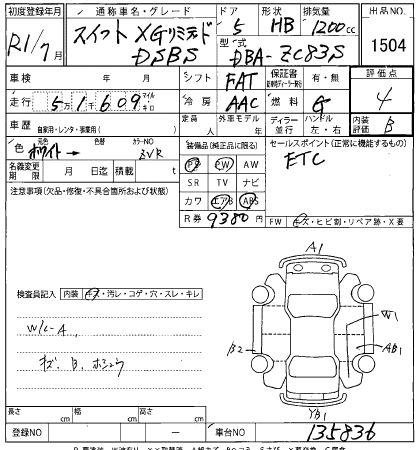 初度登録年月 通称車名・グレード ドア 形状 排気量 出品NO.
R1/7月 スイフト XGリミテッド DSBS 5 HB 1200cc 1504
型式 DBA-ZC83S
車検 年 月 シフト FAT 保証書 有・無 評価点
走行 5万1千609 マイル キロ 冷房 AAC 燃料 G 4
車歴 自家用・レンタ・事業用( ) 定員 人 外車モデル ディーラー 並行 ハンドル 左・右 内装評価 B
色 元色 ホワイト→ 色替 カラーNO ZVR
装備品(純正品に限る) セールスポイント(正常に機能するもの)
名義変更期限 月 日迄 積載 t
PS PW AW ETC
注意事項(欠品・修復・不具合箇所および状態)
SR TV ナビ
カワ エアB ABS
R券 9380円 FW キズ・ヒビ割・リペア跡・X要
A1
検査員記入 内装 キズ・汚レ・コゲ・穴・スレ・キレ
W1
W/C-A
B2 AB1
キズ、B、ホシュウ
YB1
長さ cm 幅 cm 高さ cm
登録NO ー 車台NO 135836